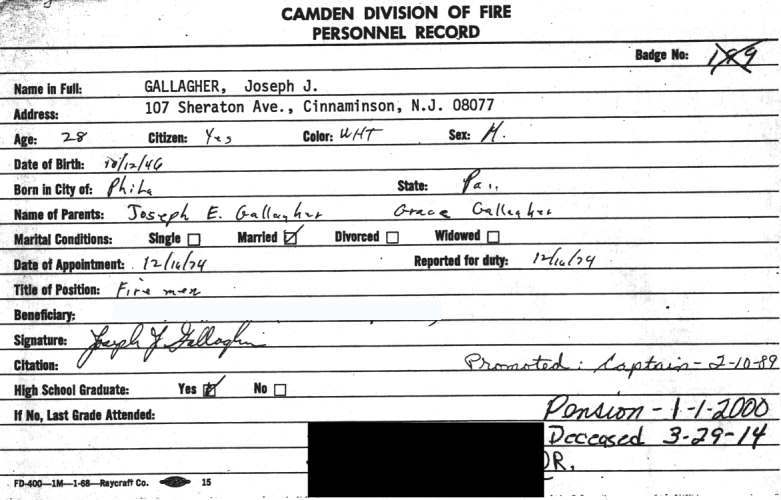 CAMDEN DIVISION OF FIRE
PERSONNEL RECORD
Badge No: 189
Name in Full: GALLAGHER, Joseph J.
Address: 107 Sheraton Ave., Cinnaminson, N.J. 08077
Age: 28 Citizen: Yes Color: WHT Sex: M.
Date of Birth: 10/12/46
Born in City of: Phila State: Pa.
Name of Parents: Joseph E. Gallagher Grace Gallagher
Marital Conditions: Single Married Divorced Widowed
Date of Appointment: 12/16/74 Reported for duty: 12/16/74
Title of Position: Fire men
Beneficiary:
Signature: Joseph J. Gallagher
Citation: Promoted: Captain - 2-10-89
High School Graduate: Yes No
If No, Last Grade Attended: Pension - 1-1-2000
Deceased 3-29-14
DR.
FD-400—1M—1-68—Raycraft Co. 15